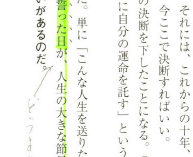 それには、これからの一年、
今ここで決断すればいい。
の決断を下したことになる。
に自分の運命を託す」という
た。単に「こんな人生を送りた
誓った日が、人生の大きな節
いがあるのだ。